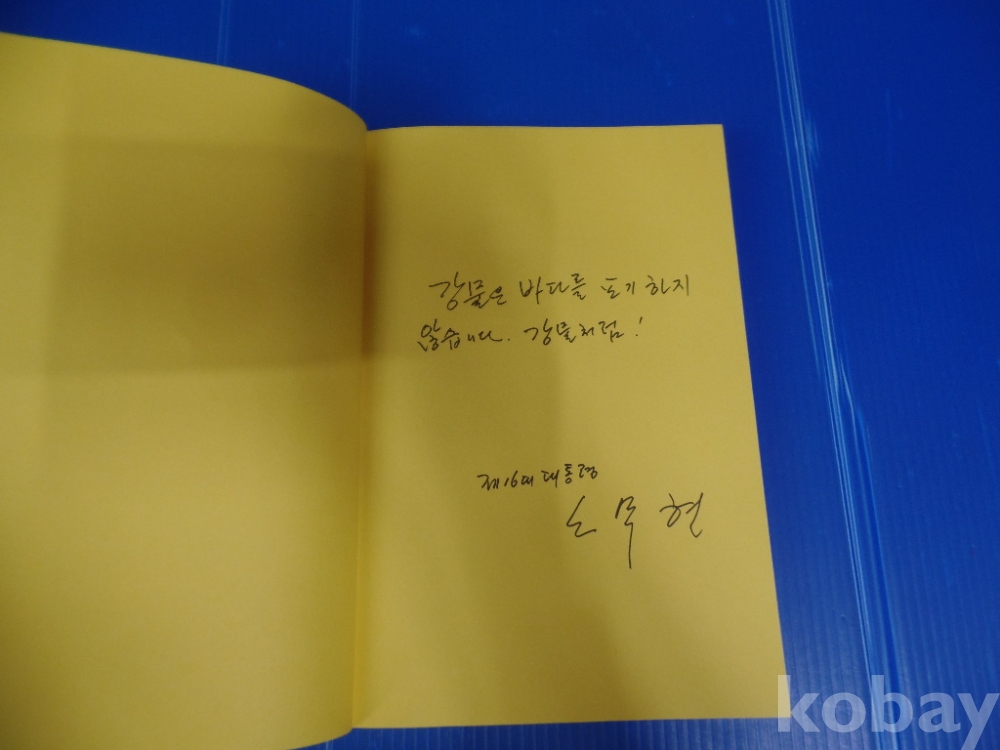 강물은 바다를 포기하지
않습니다. 강물처럼!
제16대 대통령
노무현
kobay